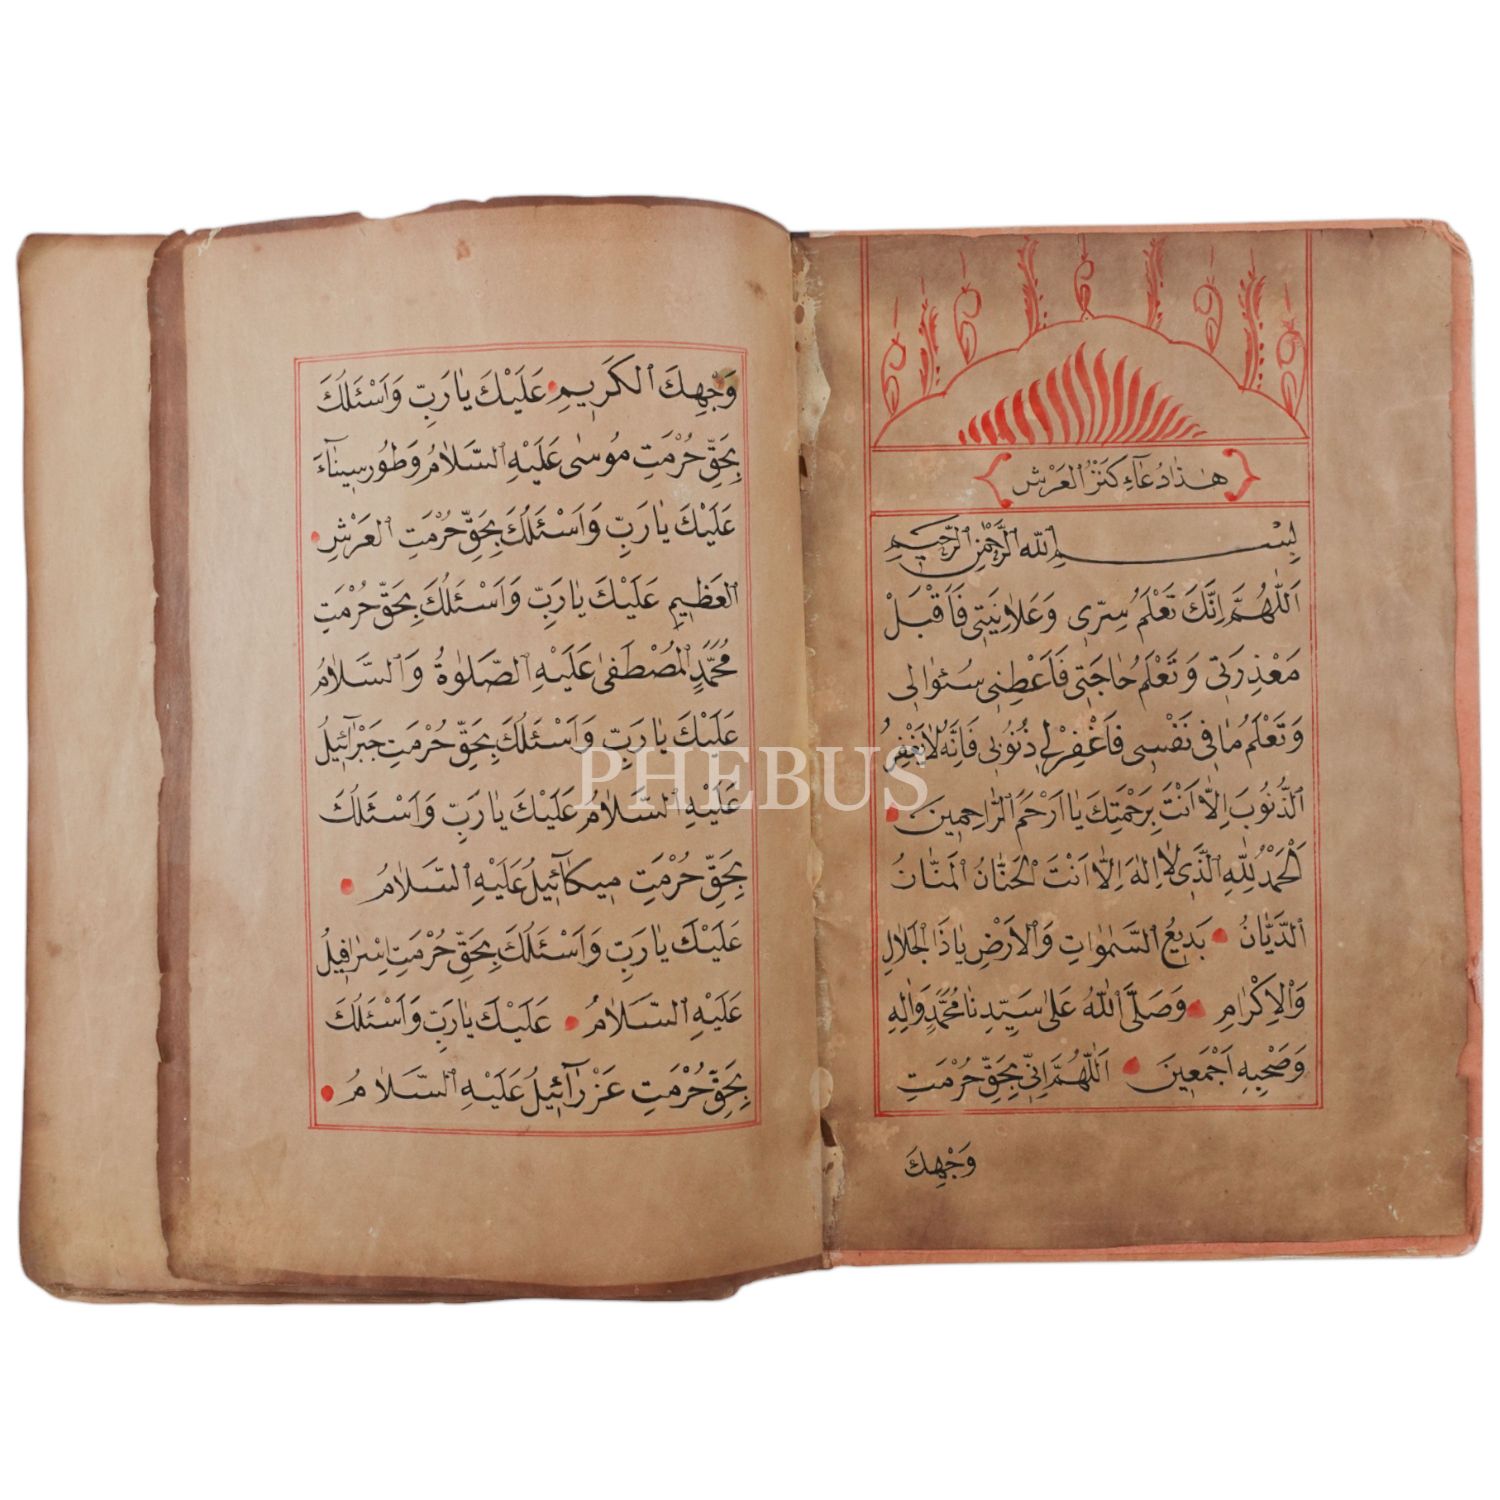 هٰذَا دُعَاءِ كَنْزُ الْعَرْشِ
بِسْمِ اللّٰهِ الرَّحْمٰنِ الرَّحِيمِ
اَللّٰهُمَّ اِنَّكَ تَعْلَمُ سِرّ۪ي وَعَلَانِيَت۪ي فَاَقْبَلْ
مَعْذِرَت۪ي وَتَعْلَمُ حَاجَت۪ي فَاَعْطِن۪ي سُئَوٰال۪ي
وَتَعْلَمُ مَا ف۪ي نَفْس۪ي فَاغْفِرْ ل۪ي ذُنُوب۪ي فَاِنَّهُ لَا يَغْفِرُ
الذُّنُوبَ اِلَّا اَنْتَ بِرَحْمَتِكَ يَا اَرْحَمَ الرَّاحِم۪ينَ
اَلْحَمْدُ لِلّٰهِ الَّذ۪ي لَا اِلٰهَ اِلَّا اَنْتَ الْحَنَّانُ الْمَنَّانُ
الدَّيَّانُ بَد۪يعُ السَّمٰوَاتِ وَالْاَرْضِ يَا ذَا الْجَلَالِ
وَالْاِكْرَامِ وَصَلَّى اللّٰهُ عَلٰى سَيِّدِنَا مُحَمَّدٍ وَاٰلِهِ
وَصَحْبِهِ اَجْمَع۪ينَ اَللّٰهُمَّ اِنّ۪ي بِحَقِّ حُرْمَتِ
وَجْهِكَ
وَجْهِكَ الْكَر۪يمِ عَلَيْكَ يَا رَبِّ وَاَسْئَلُكَ
بِحَقِّ حُرْمَتِ مُوسٰى عَلَيْهِ السَّلَامُ وَطُورِ س۪ينَاءَ
عَلَيْكَ يَا رَبِّ وَاَسْئَلُكَ بِحَقِّ حُرْمَتِ الْعَرْشِ
الْعَظ۪يمِ عَلَيْكَ يَا رَبِّ وَاَسْئَلُكَ بِحَقِّ حُرْمَتِ
مُحَمَّدٍ الْمُصْطَفٰى عَلَيْهِ الصَّلٰوةُ وَالسَّلَامُ
عَلَيْكَ يَا رَبِّ وَاَسْئَلُكَ بِحَقِّ حُرْمَتِ جَبْرَائ۪يلُ
عَلَيْهِ السَّلَامُ عَلَيْكَ يَا رَبِّ وَاَسْئَلُكَ
بِحَقِّ حُرْمَتِ م۪يكَائ۪يلُ عَلَيْهِ السَّلَامُ
عَلَيْكَ يَا رَبِّ وَاَسْئَلُكَ بِحَقِّ حُرْمَتِ اِسْرَاف۪يلُ
عَلَيْهِ السَّلَامُ عَلَيْكَ يَا رَبِّ وَاَسْئَلُكَ
بِحَقِّ حُرْمَتِ عَزْرَائ۪يلُ عَلَيْهِ السَّلَامُ
PHEBUS